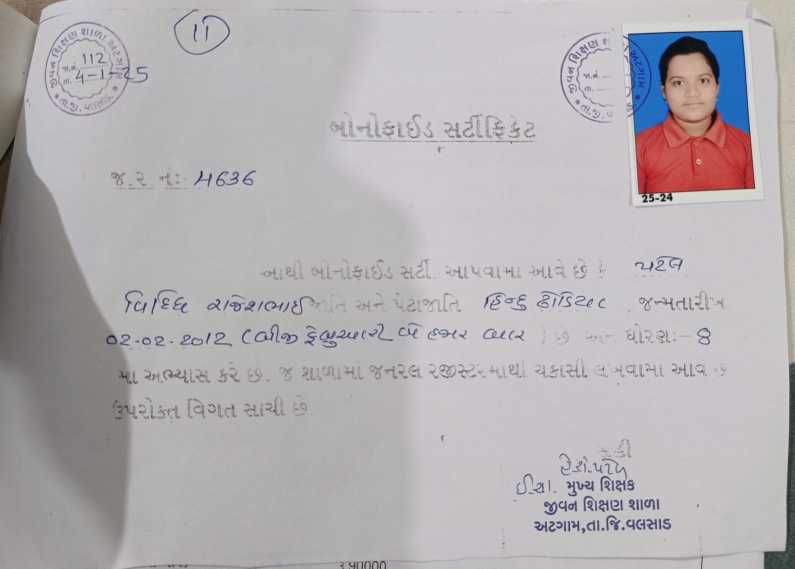 ૧૧
જીવન શિક્ષણ શાળા અટગામ
જા.નં. 112
તા. 4-1-25
તા.જી. વલસાડ
25-24
બોનોફાઈડ સર્ટીફિકેટ
જ.ર નં:- 4636
આથી બોનોફાઈડ સર્ટી. આપવામા આવે છે કે પટેલ
વિધ્ધિ રાજેશભાઈ જાતિ અને પેટાજાતિ હિન્દુ ઢોડિયા જન્મતારીખ
02-02-2012 (બીજી ફેબ્રુઆરી બે હજાર બાર) છે અને ધોરણ:- 8
મા અભ્યાસ કરે છે. જ શાળામાં જનરલ રજીસ્ટરમાથી ચકાસી લખવામા આવ છે
ઉપરોક્ત વિગત સાચી છે
ઈ.ચા. મુખ્ય શિક્ષક
જીવન શિક્ષણ શાળા
અટગામ,તા.જિ.વલસાડ